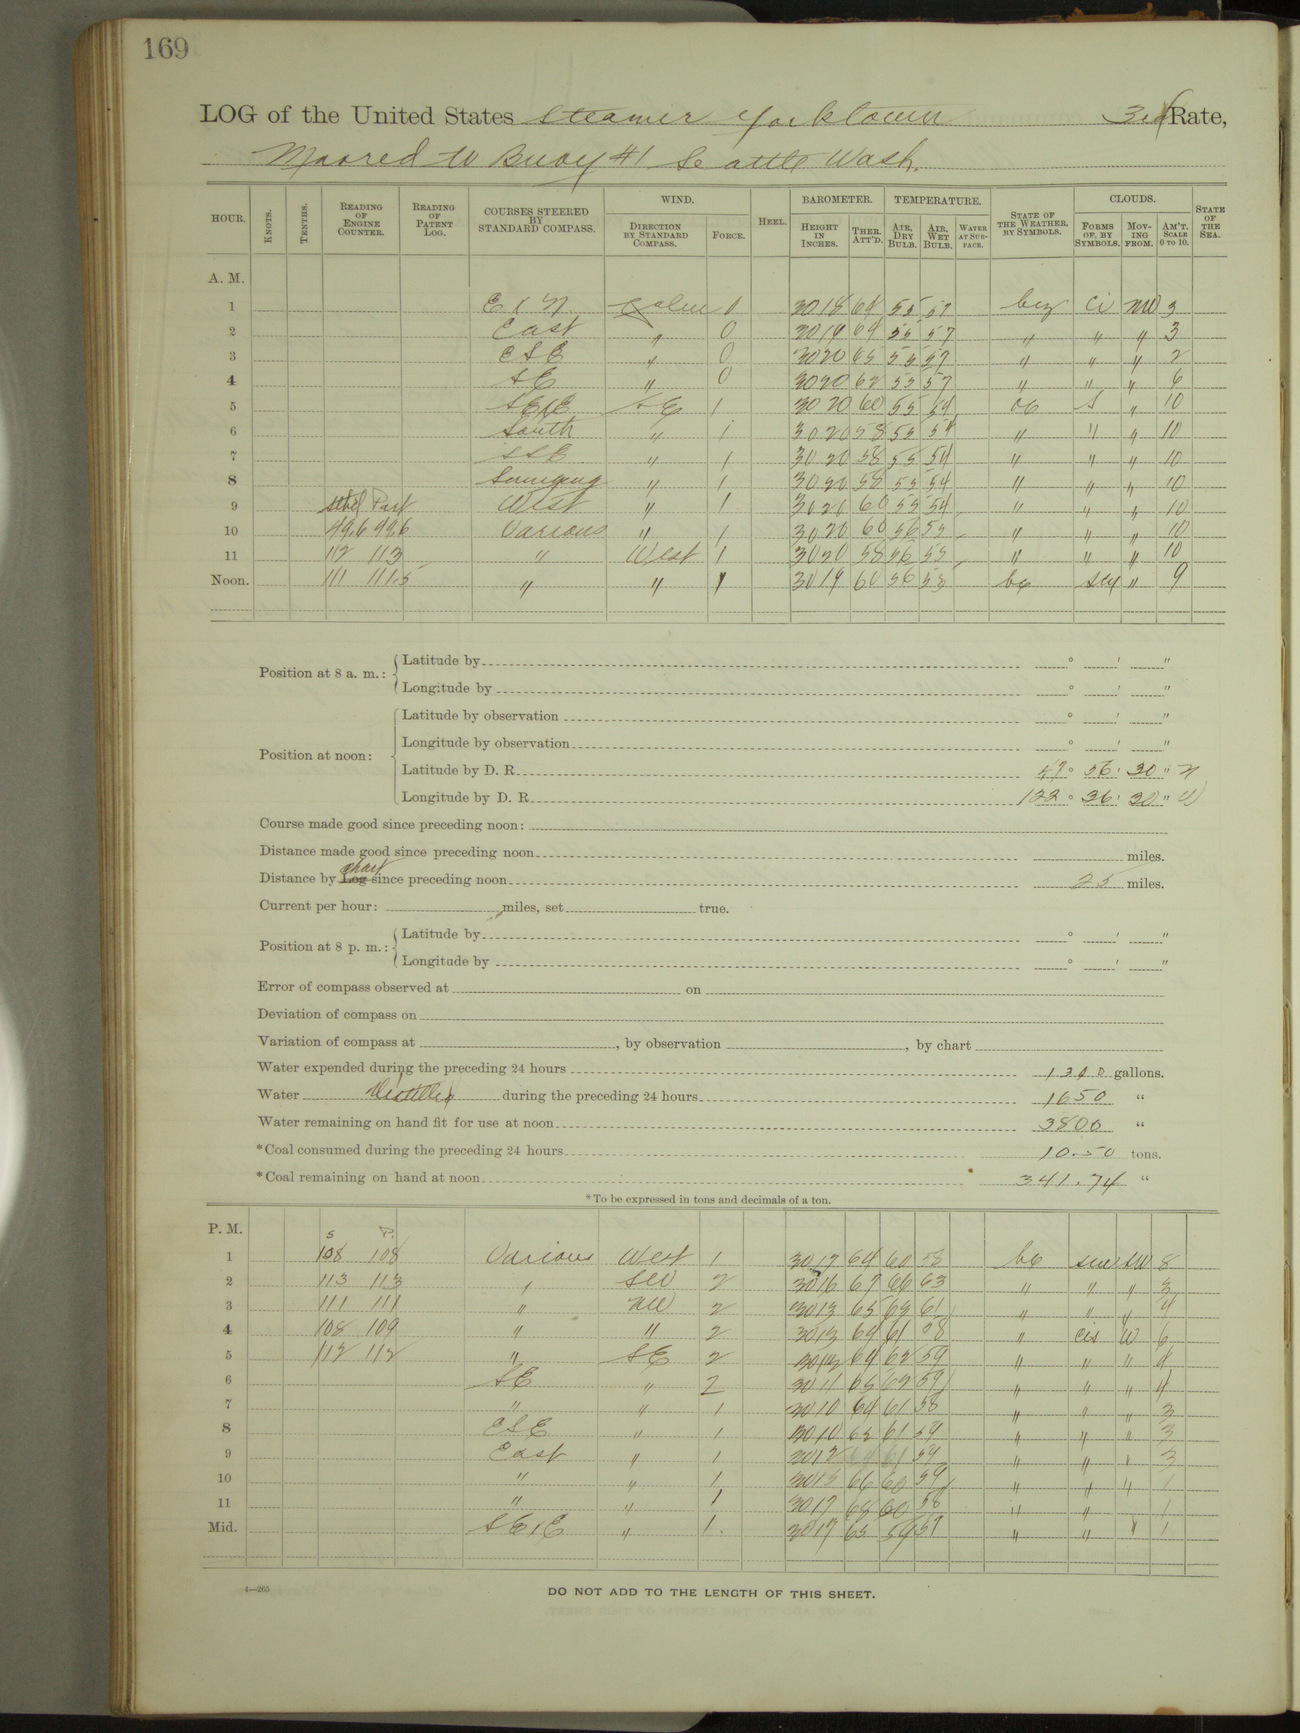 169
LOG of the United States Steamer Yorktown 3rd Rate,
Moored to Buoy #1 Seattle Wash.
HOUR. KNOTS. TENTHS. READING OF ENGINE COUNTER. READING OF PATENT LOG. COURSES STEERED BY STANDARD COMPASS. WIND. DIRECTION BY STANDARD COMPASS. FORCE. HEEL. BAROMETER. HEIGHT IN INCHES. THER. ATT'D. TEMPERATURE. AIR, DRY BULB. AIR, WET BULB. WATER AT SURFACE. STATE OF THE WEATHER, BY SYMBOLS. CLOUDS. FORMS OF, BY SYMBOLS. MOVING FROM. AM'T. SCALE 0 TO 10. STATE OF THE SEA.
A. M.
1 Calm 0 30 18 64 55 57 Ci NW 3
2 East " 0 30 19 64 55 57 " " " 3
3 ESE " 0 30 20 63 55 57 " " " 2
4 SE " 0 30 20 62 55 57 " " " 6
5 1 30 20 60 55 54 S " 10
6 South " 1 30 20 58 55 54 " " " 10
7 SSE " 1 30 20 58 55 54 " " " 10
8 Swinging " 1 30 20 58 55 54 " " " 10
9 Stbd Port West " 1 30 20 60 55 54 " " " 10
10 49.6 49.6 Various " 1 30 20 60 56 55 " " " 10
11 112 113 " West 1 30 20 58 56 55 " " " 10
Noon. 111 111.5 " " 1 30 19 60 56 55 bc " 9
Position at 8 a. m.: Latitude by ° ' "
Longitude by ° ' "
Position at noon: Latitude by observation ° ' "
Longitude by observation ° ' "
Latitude by D. R. 47° 36' 30" N
Longitude by D. R. 122° 36' 30" W
Course made good since preceding noon:
Distance made good since preceding noon miles.
Distance by Log chart since preceding noon 25 miles.
Current per hour: miles, set true.
Position at 8 p. m.: Latitude by ° ' "
Longitude by ° ' "
Error of compass observed at on
Deviation of compass on
Variation of compass at , by observation , by chart
Water expended during the preceding 24 hours 1300 gallons.
Water Distilled during the preceding 24 hours 1650 "
Water remaining on hand fit for use at noon 3800 "
*Coal consumed during the preceding 24 hours 10.50 tons.
*Coal remaining on hand at noon 341.74 "
*To be expressed in tons and decimals of a ton.
P. M. S P.
1 108 108 Various West 1 30 17 64 60 58 bc SW 8
2 113 113 " SW 2 30 16 67 66 63 " " " 3
3 111 111 " NW 2 30 13 65 63 61 " " " 4
4 108 109 " " 2 30 13 64 61 58 " cis W 6
5 112 112 " SE 2 30 12 64 62 59 " " " 4
6 SE " 2 30 11 65 62 59 " " " 4
7 " " 1 30 10 64 61 58 " " " 3
8 ESE " 1 30 10 62 61 59 " " " 3
9 East " 1 30 12 61 59 " " " 3
10 " " 1 30 15 66 60 59 " " " 1
11 " " 1 30 17 68 60 58 " " 1
Mid. " 1 30 17 65 59 57 " " " 1
4—265
DO NOT ADD TO THE LENGTH OF THIS SHEET.